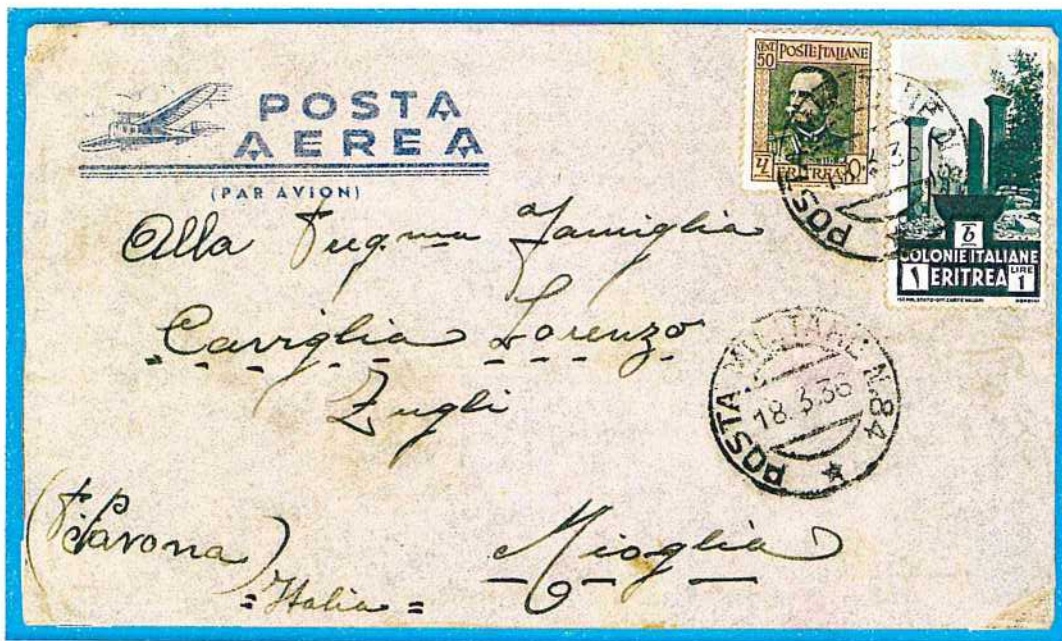 POSTA
AEREA
(PAR AVION)
CENT 50 POSTE ITALIANE
ERITREA
COLONIE ITALIANE
1 ERITREA LIRE 1
Alla Famiglia
Caviglia Lorenzo
Zugli
POSTA MILITARE N.84
18.3.36
(Savona)
Mioglia
=Italia=